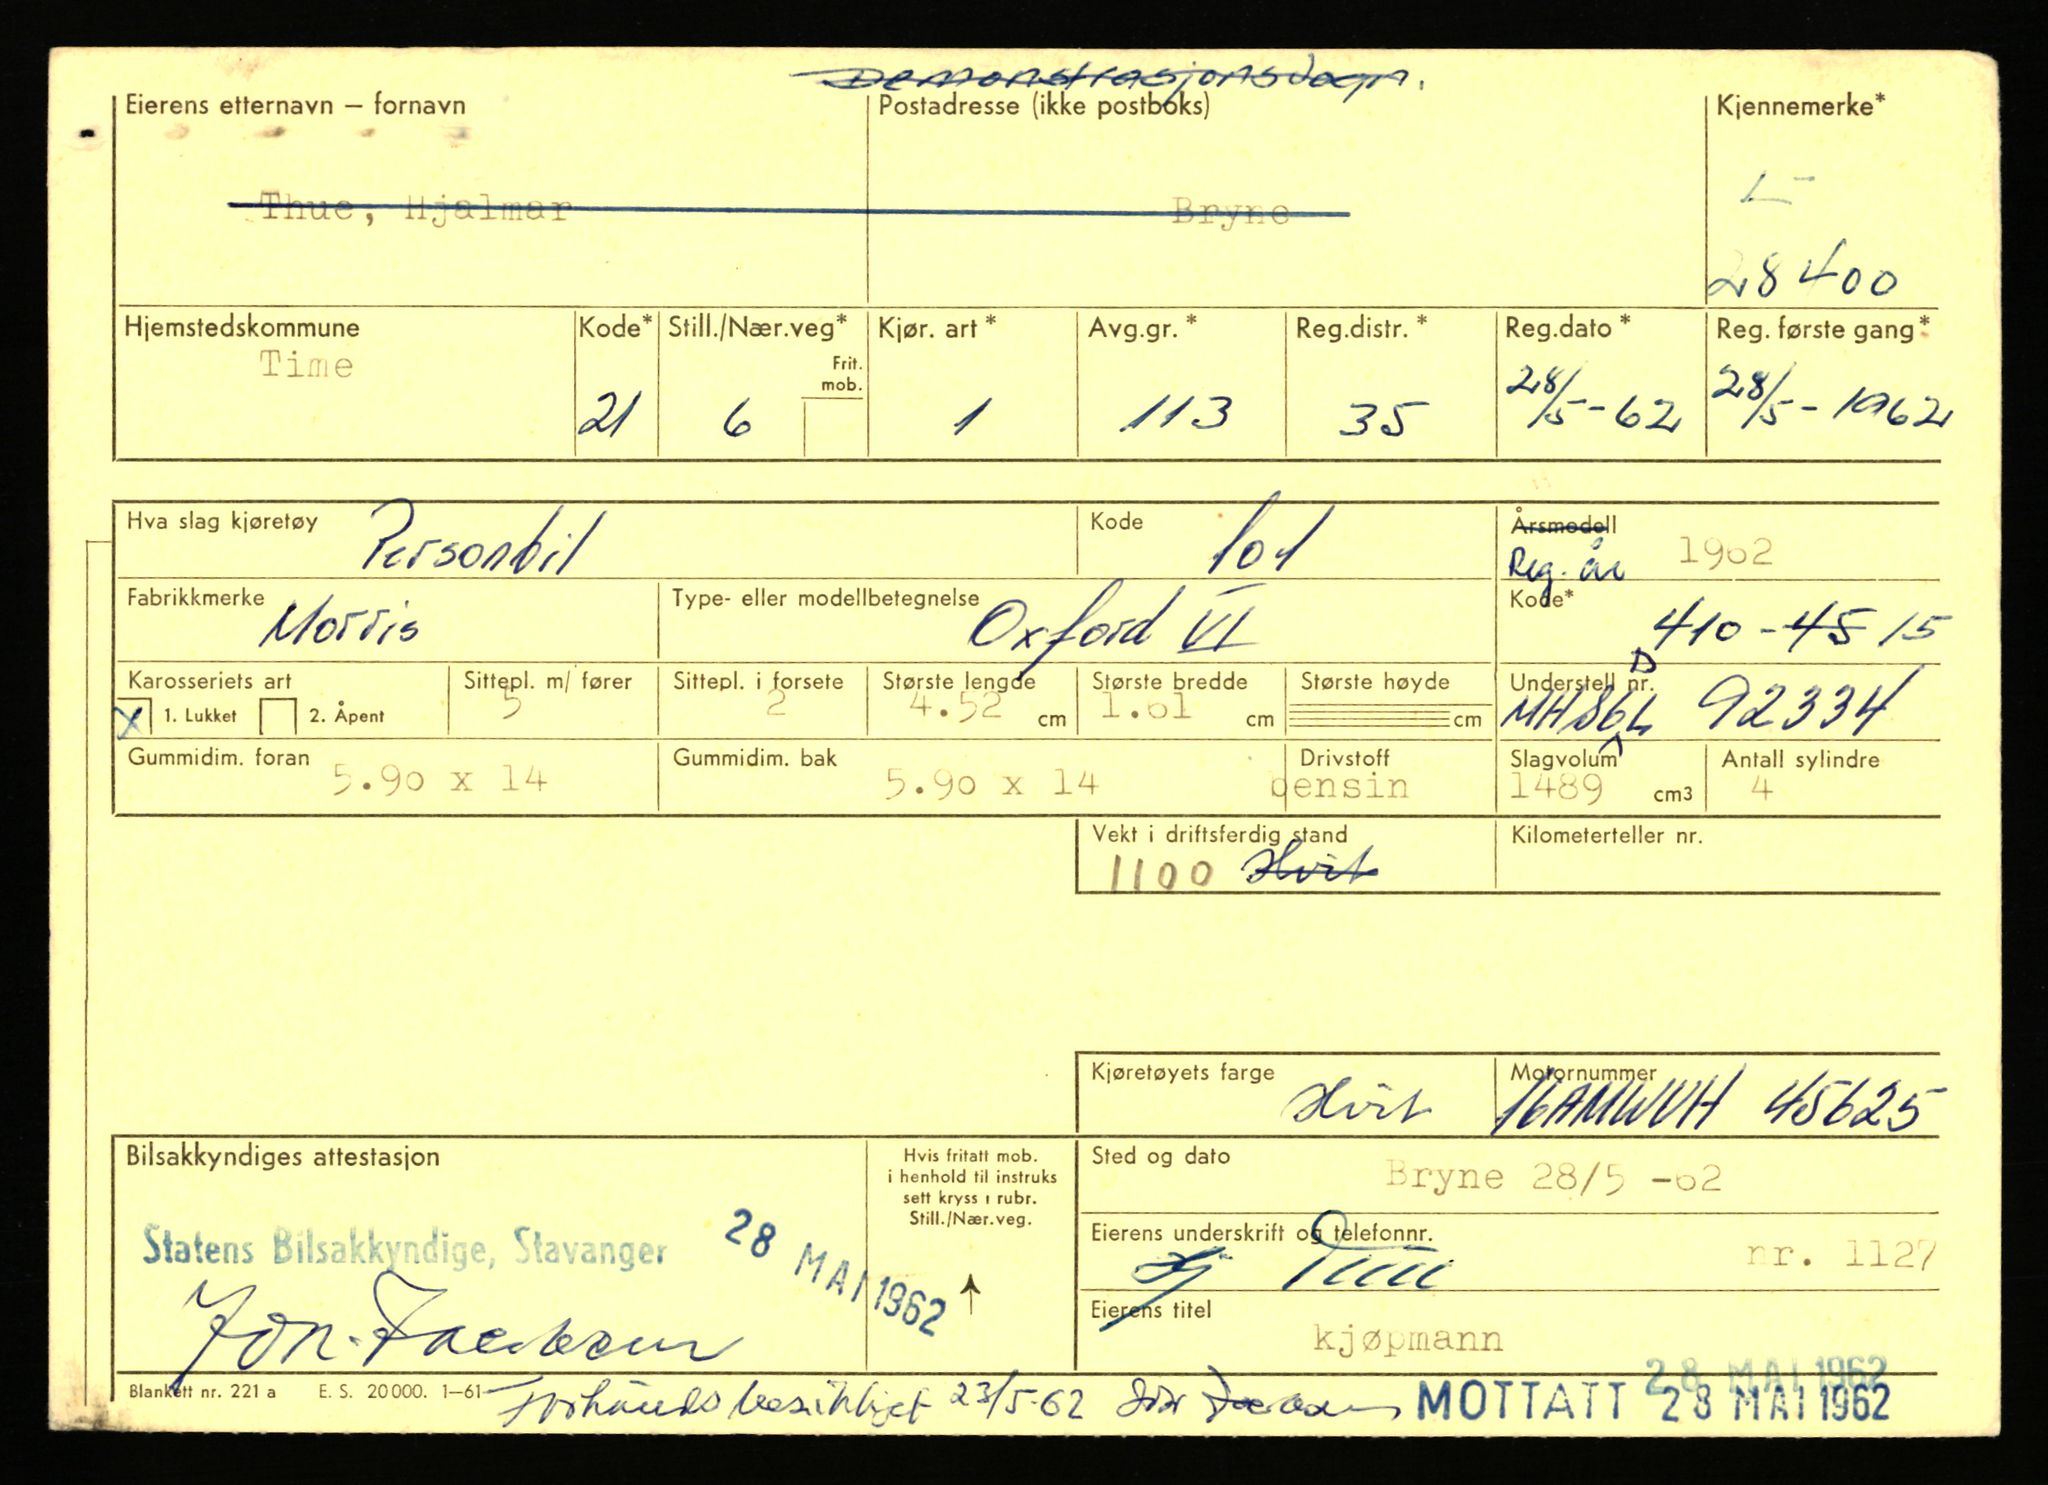 Demonstrasjonsvogn.
Eierens etternavn – fornavn Postadresse (ikke postboks) Kjennemerke*
L-
Thue, Hjalmar Bryne
28400
Hjemstedskommune Kode* Still./Nær.veg* Kjør. art* Avg.gr.* Reg.distr.* Reg.dato* Reg. første gang*
Time Frit. mob.
21 6 1 113 35 28/5-62 28/5-1962
Hva slag kjøretøy Personbil Kode 101 Årsmodell
Reg. år 1962
Fabrikkmerke Morris Type- eller modellbetegnelse Oxford VI Kode*
410-45 15
Karosseriets art Sittepl. m/ fører Sittepl. i forsete Største lengde Største bredde Største høyde Understell nr.
D
X 1. Lukket 2. Åpent 5 2 4.52 cm 1.61 cm cm MHS6L 92334
Gummidim. foran Gummidim. bak Drivstoff Slagvolum Antall sylindre
5.90 x 14 5.90 x 14 bensin 1489 cm3 4
Vekt i driftsferdig stand Kilometerteller nr.
1100 Hvit
Kjøretøyets farge Motornummer
Hvit 16AMWVH 45625
Bilsakkyndiges attestasjon Hvis fritatt mob. Sted og dato
i henhold til instruks
sett kryss i rubr.
Still./Nær.veg.
Bryne 28/5 -62
Statens Bilsakkyndige, Stavanger 28 MAI 1962
Eierens underskrift og telefonnr.
nr. 1127
Eierens titel
kjøpmann
28 MAI 1962
Blankett nr. 221 a E. S. 20000. 1–61 Forhåndsbesiktiget 23/5-62 MOTTATT 28 MAI 1962